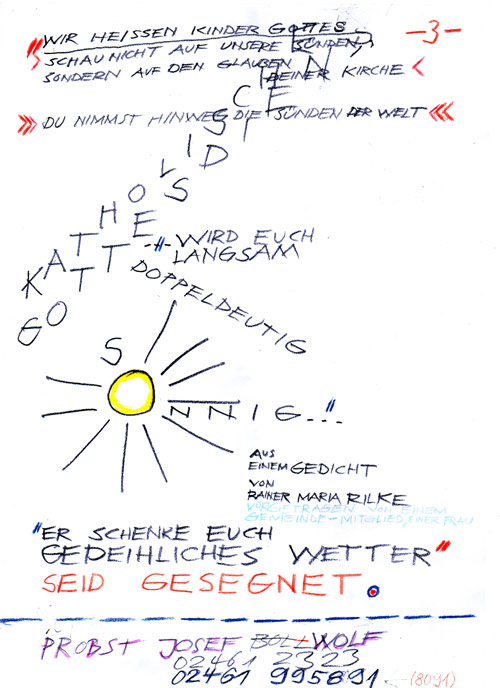 -3-
"WIR HEISSEN KINDER GOTTES
SCHAU NICHT AUF UNSERE SÜNDEN,
SONDERN AUF DEN GLAUBEN DEINER KIRCHE
DU NIMMST HINWEG DIE SÜNDEN DER WELT
KATHOLISCHE
GOTTESDIEN
-"- WIRD EUCH
LANGSAM
DOPPELDEUTIG
S NNIG..."
AUS
EINEM GEDICHT
VON
RAINER MARIA RILKE
VORGETRAGEN VON EINEM
GEMEINDE-MITGLIED, EINER FRAU
"ER SCHENKE EUCH
GEDEIHLICHES WETTER"
SEID GESEGNET.
PROBST JOSEF BOLL WOLF
02461 2323
02461 995891 (8091)